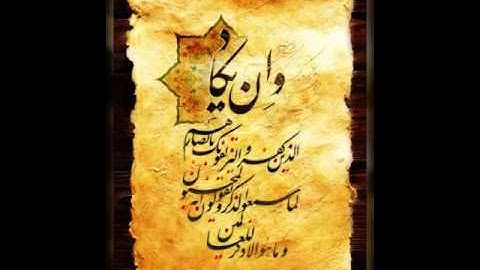 وَاِن یکاد
الذین کفروا لیزلقونک بابصارهم
لما سمعوا الذکر و یقولون انه لمجنون
و ما هو الا ذکر للعالمین